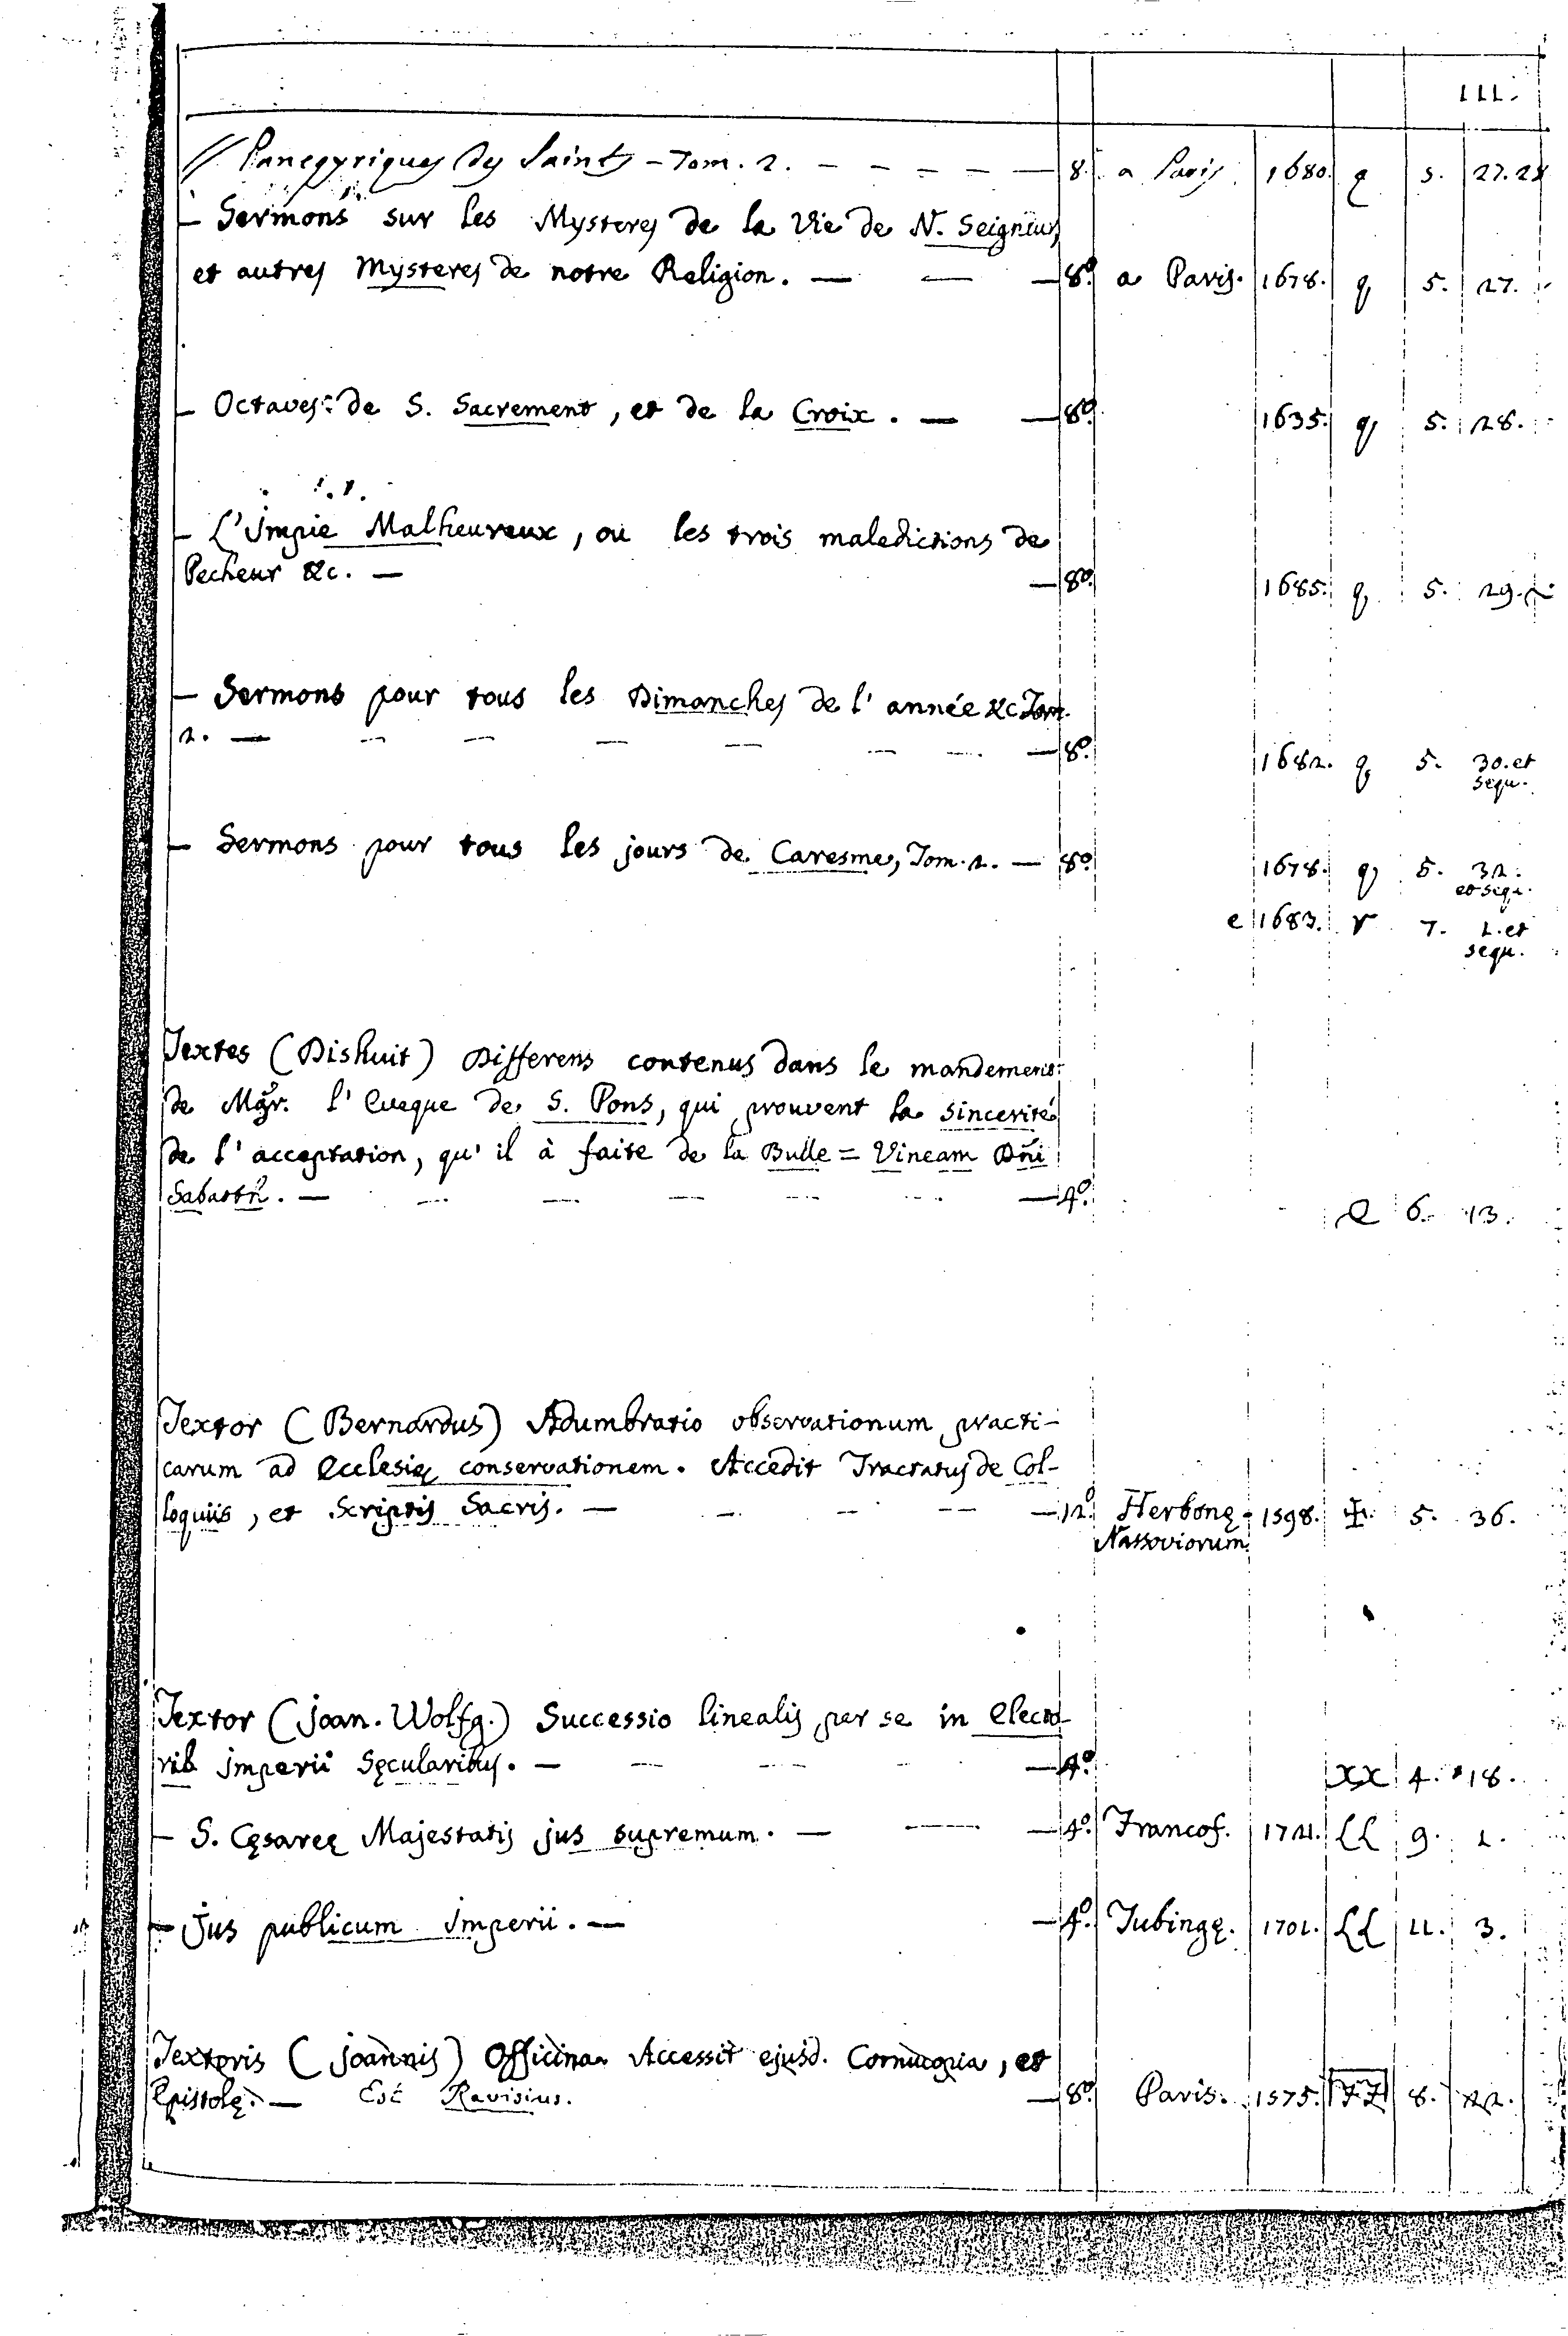 111.
// Panegyriques des Saints - Tom. 2. - - - - - 8. a Paris. 1680. q 5. 27.28
- Sermons sur les Mysteres de la Vie de N. Seigneur,
et autres Mysteres de notre Religion. - - - 8.º a Paris. 1678. q 5. 27.
- Octaves de S. Sacrement, et de la Croix. - - 8.º 1635. q 5. 28.
- L'Impie Malheureux, ou les trois maledictions de
Pecheur &c. - - 8.º 1685. q 5. 29.
- Sermons pour tous les Dimanches de l'année &c Tom.
2. - - - - - - - - 8.º 1682. q 5. 30. et
sequ.
- Sermons pour tous les jours de Caresme, Tom. 2. - 8.º 1678. q 5. 32.
et sequ.
e 1683. r 7. 1. et
sequ.
Textes (Dishuit) Differens contenus dans le mandement
de Mgr. l'Eveque de S. Pons, qui prouvent la sincerité
de l'acceptation, qu'il à faite de la Bulle = Vineam Dñi
Sabaoth. - - - - - - - 4.º Q 6. 13.
Textor (Bernardus) Adumbratio observationum practi-
carum ad Ecclesię conservationem. Accedit Tractatus de Col-
loquiis, et Scriptis Sacris. - - - - - 12.º Herbonę 1598. ✠ 5. 36.
Nassoviorum
Textor (Joan. Wolfg.) Successio linealis per se in Electo-
rib Imperii Sęcularibus. - - - - - 4.º XX 4. 18.
- S. Cęsareę Majestatis jus supremum. - - - 4.º Francof. LL 9. 1.
- Jus publicum Imperii. - - 4.º Tubingę. 1701. LL 11. 3.
Textoris (Joannis) Officina. Accessit ejusd. Cornucopia, et
Epistolę. - Est Ravisius. - 8.º Paris. 1575. 8.